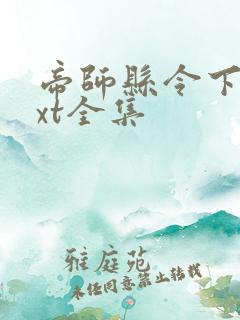 帝师县令下
xt全集
雅庭苑
未经同意禁止转载